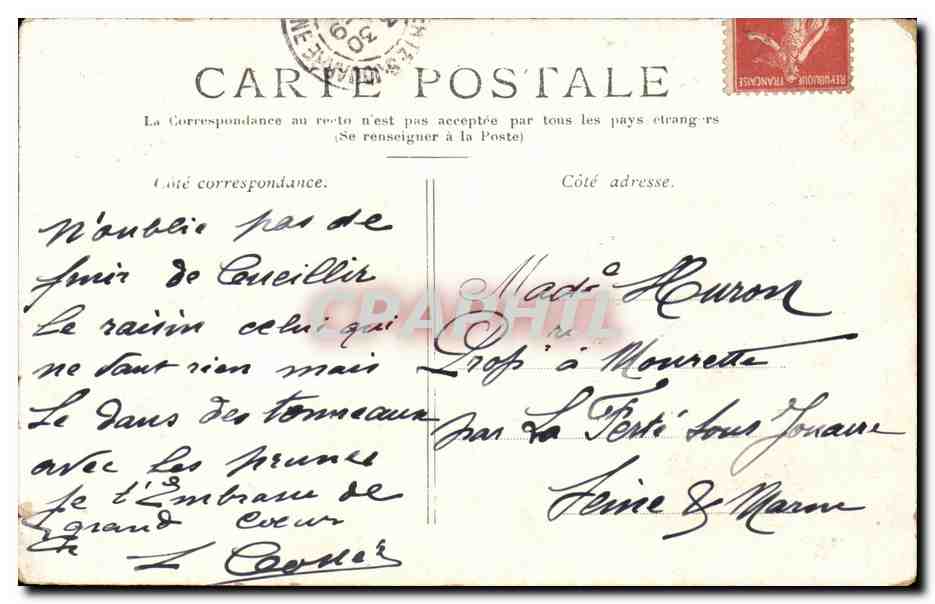 CARTE POSTALE
La Correspondance au recto n'est pas acceptée par tous les pays étrangers
(Se renseigner à la Poste)
Côté correspondance.
N'oublie pas de
finir de Cueillir
le raisin celui qui
ne vaut rien mais
le dans des tonneaux
avec les prunes
Je t'Embrasse de
grand coeur
L
Côté adresse.
Made Huron
Propre à Mourette
par La Ferté sous Jouarre
Seine & Marne
REPUBLIQUE FRANÇAISE
30
CRAPHIL